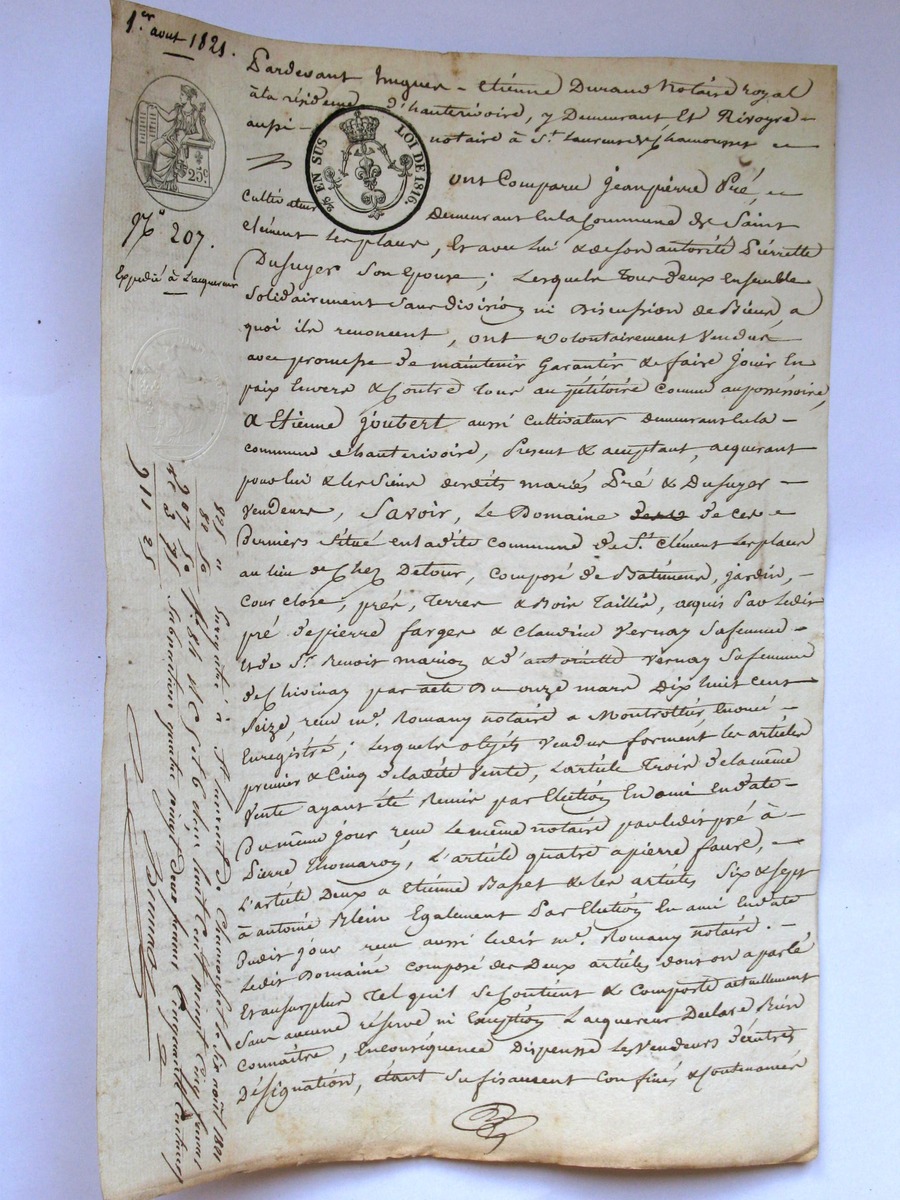 1.er aout 1821.
25c
N.o 207.
Expédié à l'acquereur
25c EN SUS LOI DE 1816.
Pardevant hugues - etiénne Durand Notaire royal
à la résidence d'hauterivoire, y Demeurant Et Rivoyre
aussi notaire à S.t Laurent de Chamousset
ont Comparu jeanpierre Pré,
Cultivateur Demeurant En la Commune de Saint
clément les places, Et avec Lui & de son autorité Piérrette
Dusuyer Son Epouse; Lesquels Tous deux Ensemble
Solidairement Sans division ni Discussion de Biens a
quoi ils renoncent, ont volontairement Vendu
avec promesse de maintenir Garantir & de faire jouir En
paix Envers & Contre Tous au pétitoire comme au possessoire,
a Etienne joubert aussi cultivateur demeurant En la
commune d'hauterivoire, Présent & acceptant, acquerant
pour lui & les Siens desdits mariés Pré & Dusuyer
Vendeurs, Savoir, Le Domaine de ces
Derniers Situé en ladite commune de S.t Clément les places
au lieu de Chez Detour, Composé de Batimens, jardin,
Cour close, prés, Terres & Bois Taillis, acquis Par Ledit
pré de pierre farges & Claudine Vernay Sa femme
Et de S.r Benoit mainon & d'antoinette Vernay Sa femme
de Chivinay par acte Du onze mars Dix huit cent
Seize, reçu m.e Romany notaire a Montrottier,
Enregistré; Lesquels objets Vendus forment les articles
premier & Cinq de ladite Vente, L'article Trois de la même
Vente ayant été Remis par Election En ami En date
Du même jour reçu Le même notaire par ledit pré à
Pierre Thomaron, L'article quatre a pierre faure,
L'article Deux a Etienne Basset & les articles Six & Sept
à antoine Blein Egalement Par Election En ami En date
Dudit jour reçu aussi ledit m.e Romany notaire.
Ledit Domaine Composé des Deux articles dont on a parlé
Et au surplus Tel qu'il Se Contient & Comporte actuellement
Sans aucune réserve ni Exception L'acquereur Declare Bien
Connaître, En conséquence Dispense Les Vendeurs d'autres
Désignation, étant Sufisanment Confinés & Contenances
825 "
82 50
907 50
3 75
911 25
Enregistré à S.t Laurent de Chamousset le six août 1821
f. 84 V. C. 5 et 6 reçu huit cent vingt cinq francs
Subvention quatre vingt deux francs Cinquante Centimes